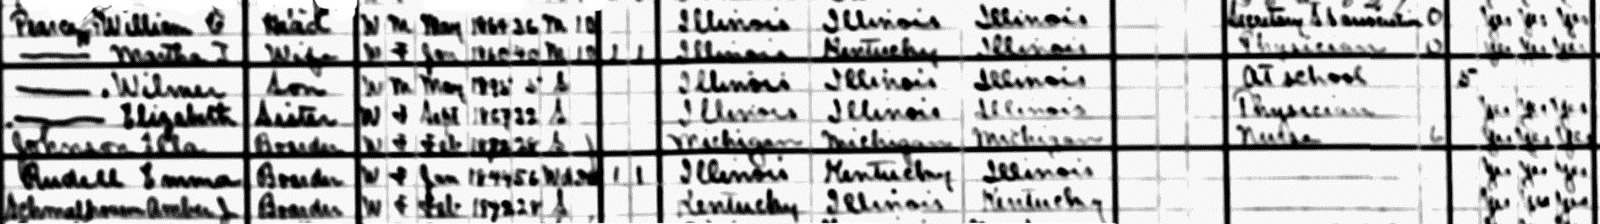 Pearcy William G Head W M May 1864 36 M 10 Illinois Illinois Illinois Secretary O yes yes yes
Martha J Wife W F Jan 1860 40 M 10 1 1 Illinois Kentucky Illinois Physician 0 yes yes yes
Wilmer Son W M May 1895 5 S Illinois Illinois Illinois At school 5
Elizabeth Sister W F Sept S Illinois Illinois Illinois Physician yes yes yes
Johnson Boarder W F Feb 28 S Michigan Michigan Michigan Nurse 6 yes yes yes
Rudell Emma Boarder W F Jan 1844 56 Wd 1 1 Illinois Kentucky Illinois yes yes yes
Amber J Boarder W F Feb 28 S Kentucky Illinois Kentucky yes yes yes